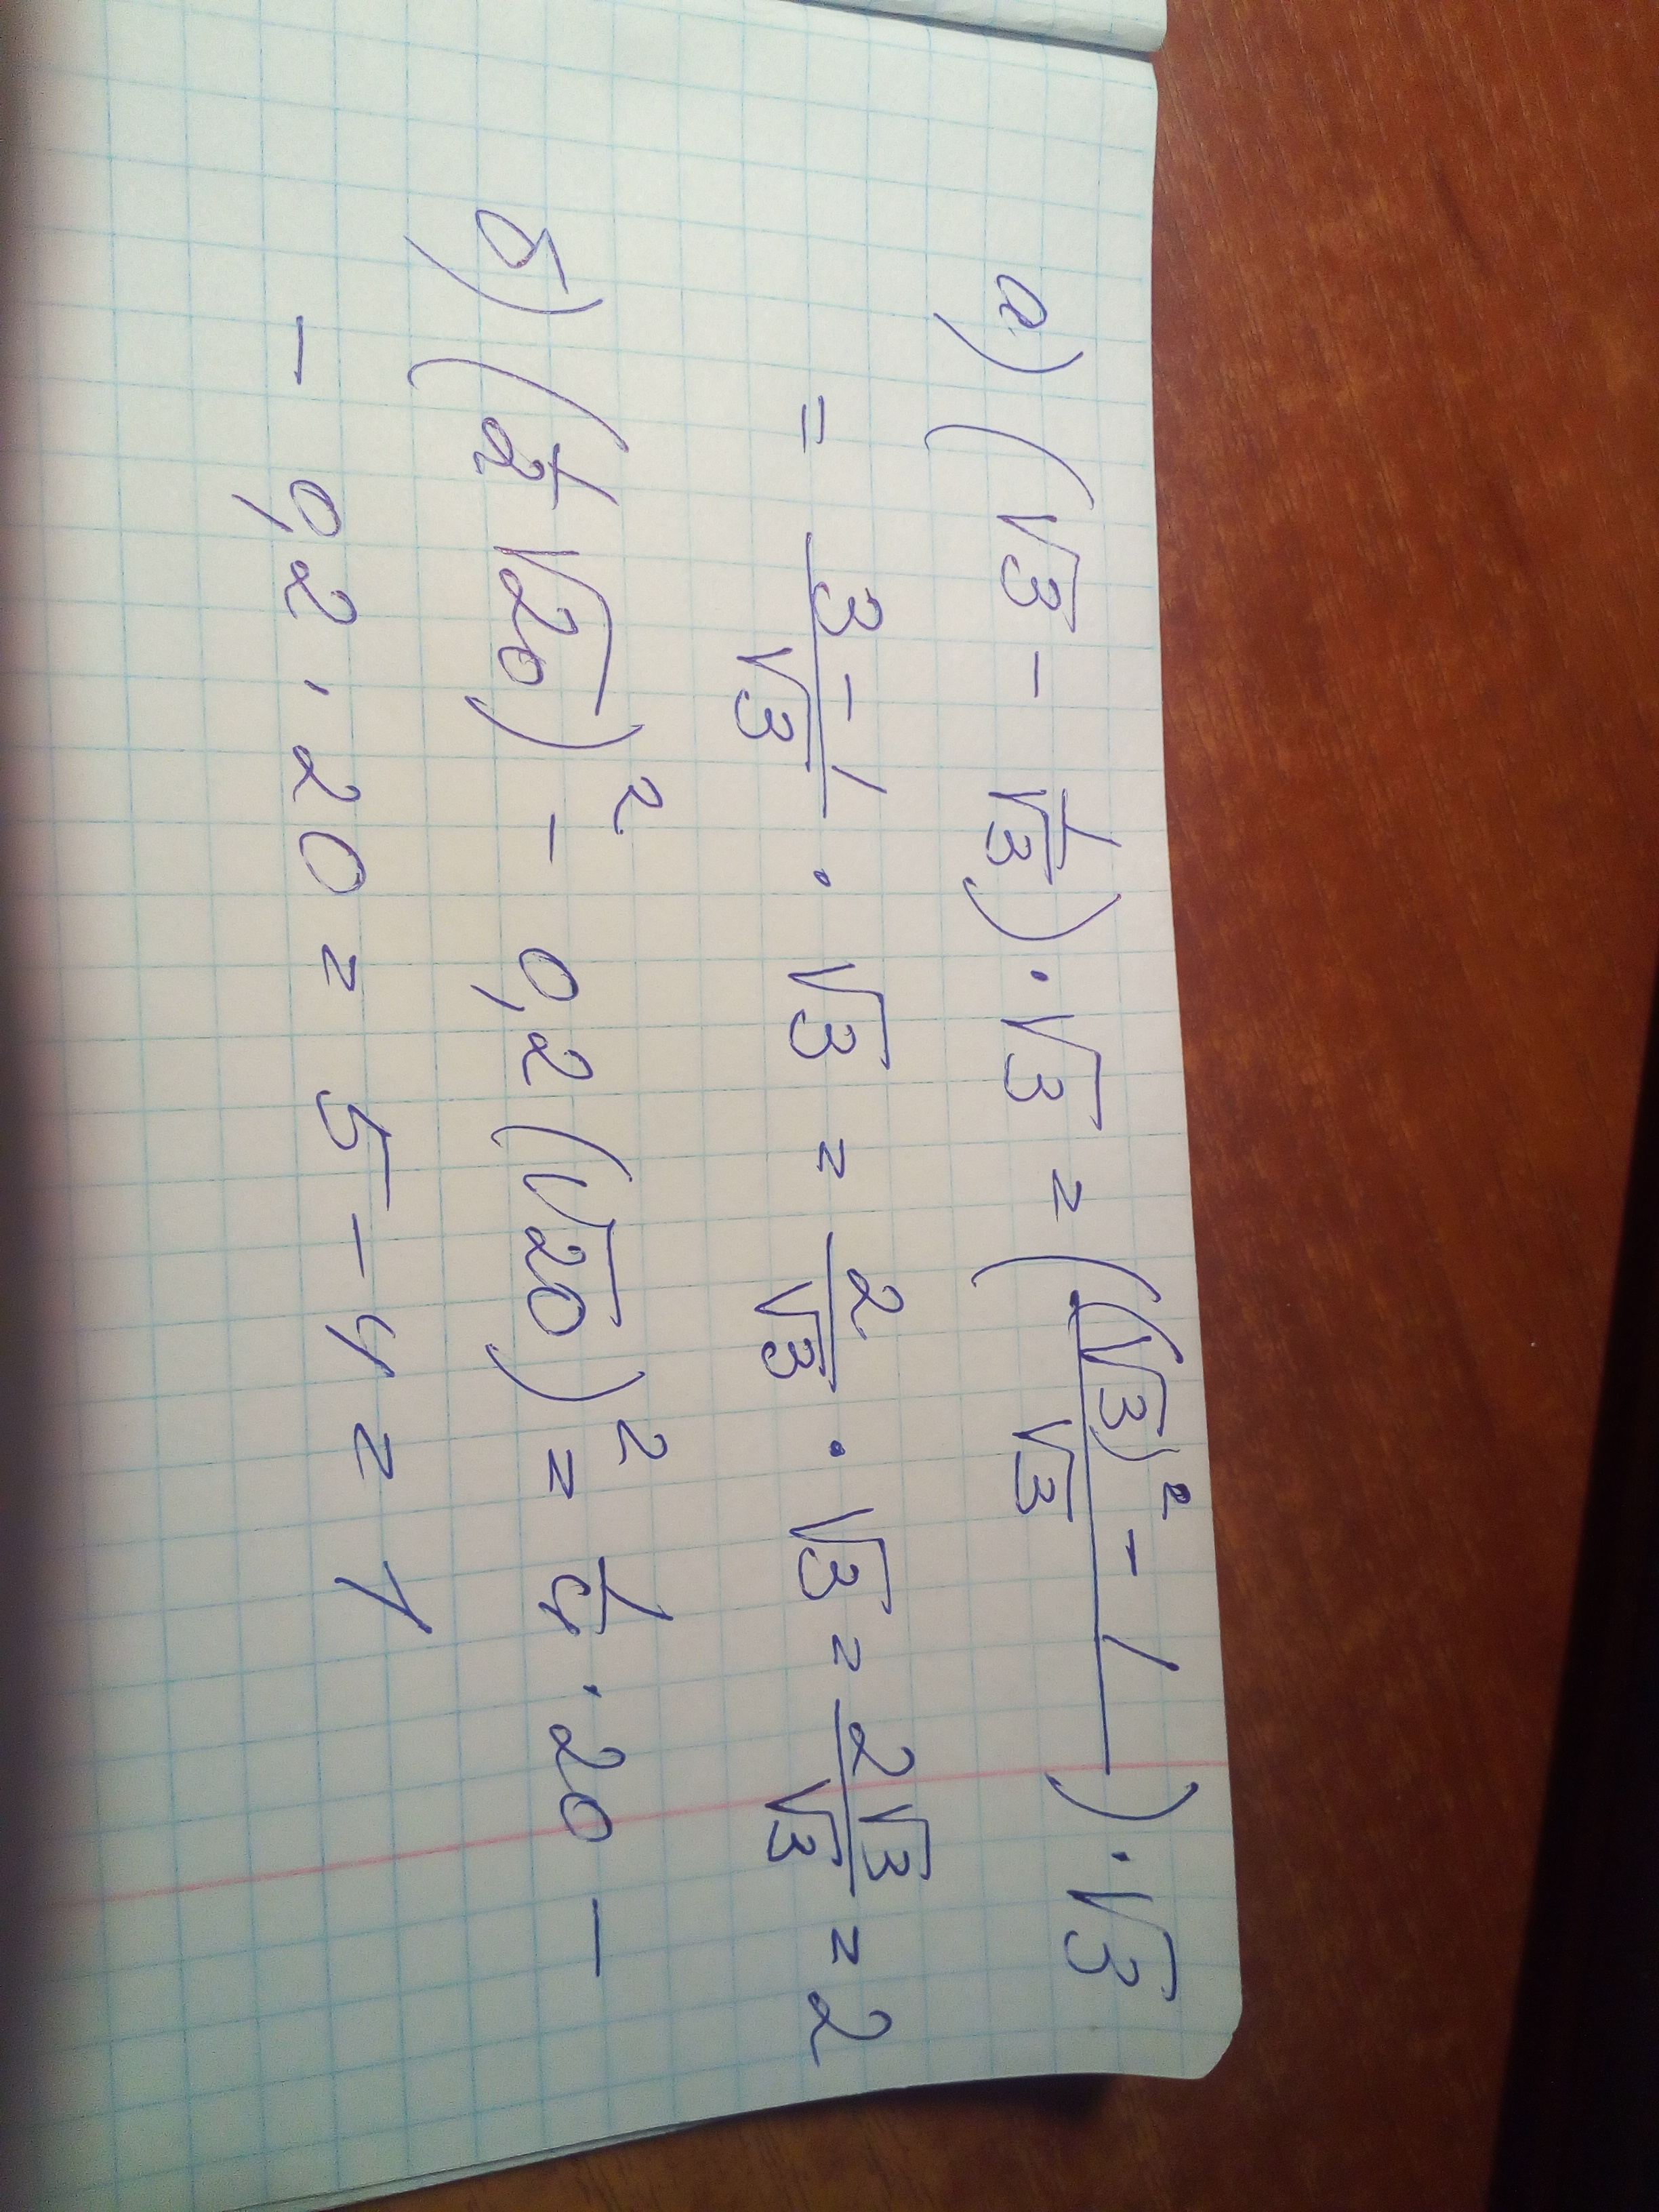 а) (√3 - 1/√3) · √3 = ((√3)² - 1 / √3) · √3
= 3 - 1/√3 · √3 = 2/√3 · √3 = 2√3/√3 = 2
б) (1/2 √20)² - 0,2 (√20)² = 1/4 · 20 -
- 0,2 · 20 = 5 - 4 = 1